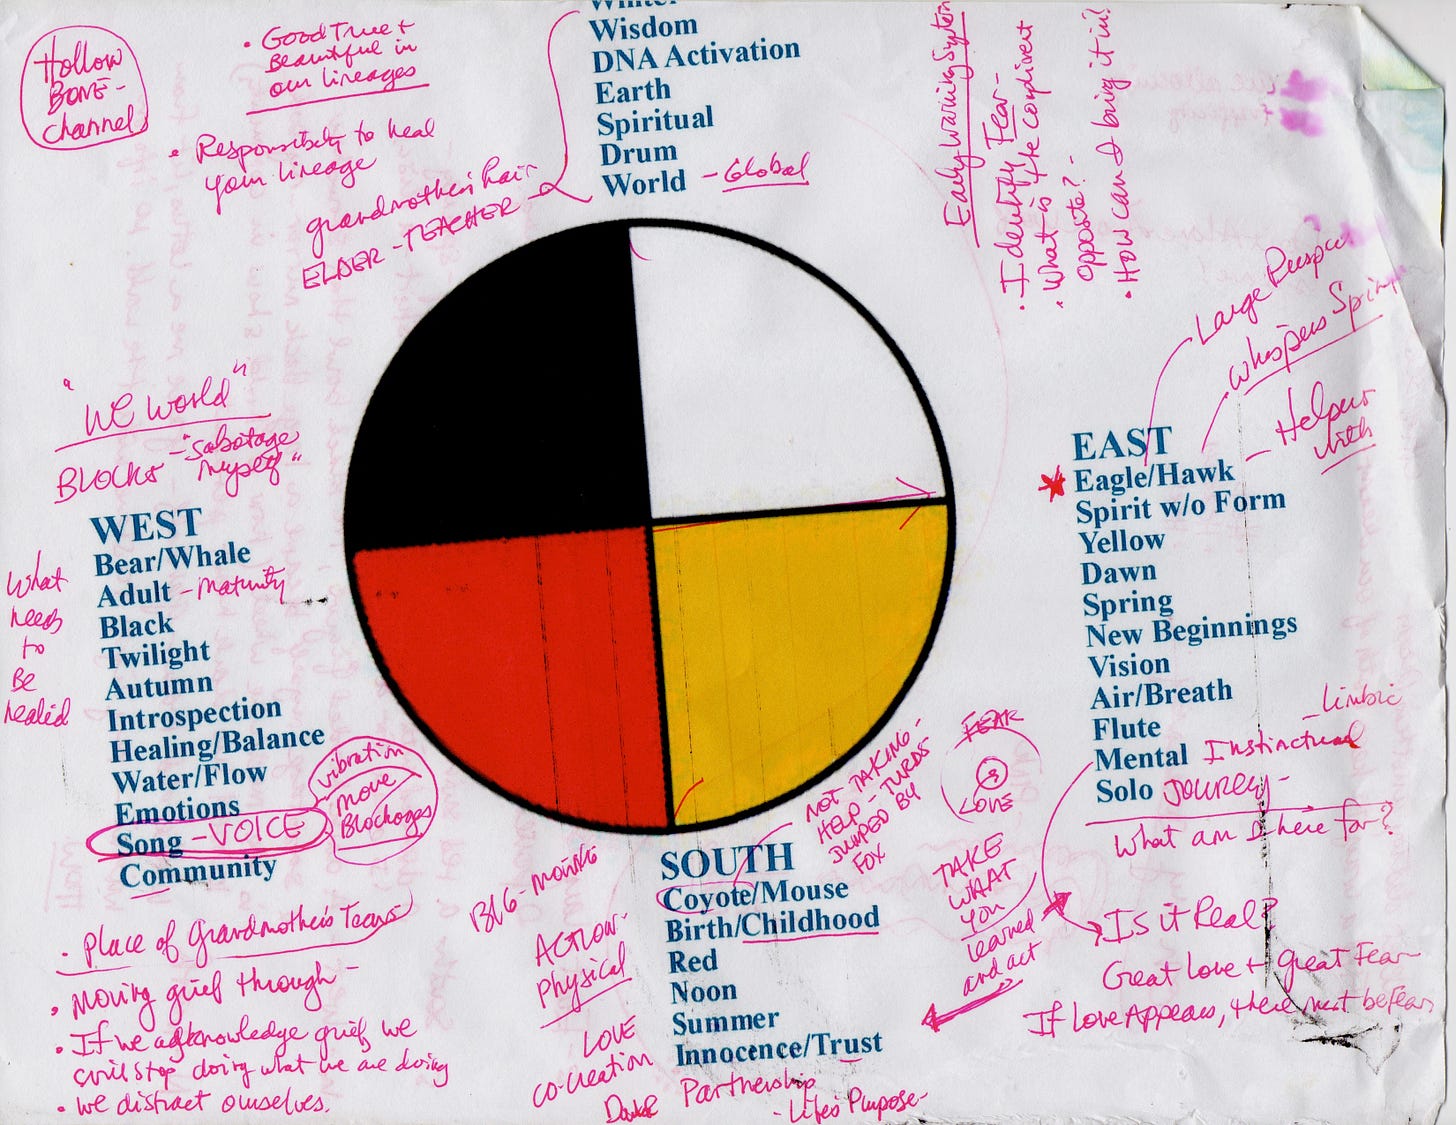 Hollow
BONE -
Channel
• Good True +
Beautiful in
our lineages
• Responsibility to heal
your lineage
grandmother's hair
ELDER - TEACHER -
Winter
Wisdom
DNA Activation
Earth
Spiritual
Drum
World - Global
Early Warning System
• Identify Fear -
• What is the
opposite? -
• How can I bring it in?
Large
whispers
- Helper
with
"WE World"
BLOCKS - "Sabotage
myself"
WEST
Bear/Whale
Adult - maturity
Black
Twilight
Autumn
Introspection
Healing/Balance
Water/Flow
Emotions
Song - VOICE
Community
What
needs
to
Be
healed
vibration
move
Blockages
• Place of Grandmother's Tears
• Moving grief through -
• If we acknowledge grief, we
will stop doing what we are doing
• we distract ourselves.
EAST
Eagle/Hawk
Spirit w/o Form
Yellow
Dawn
Spring
New Beginnings
Vision
Air/Breath
Flute
Mental Instinctual
- Limbic
Solo Journey -
What am I here for?
Is it Real?
Great Love + Great Fear
If Love Appears, there must be Fear
FEAR
LOVE
NOT TAKING -
HELP - TURDS
JUMPED BY
FOX
TAKE
WHAT
YOU
learned
and act
SOUTH
Coyote/Mouse
Birth/Childhood
Red
Noon
Summer
Innocence/Trust
BIG -
ACTION -
Physical
LOVE
co-creation
Partnership
- Life's Purpose -